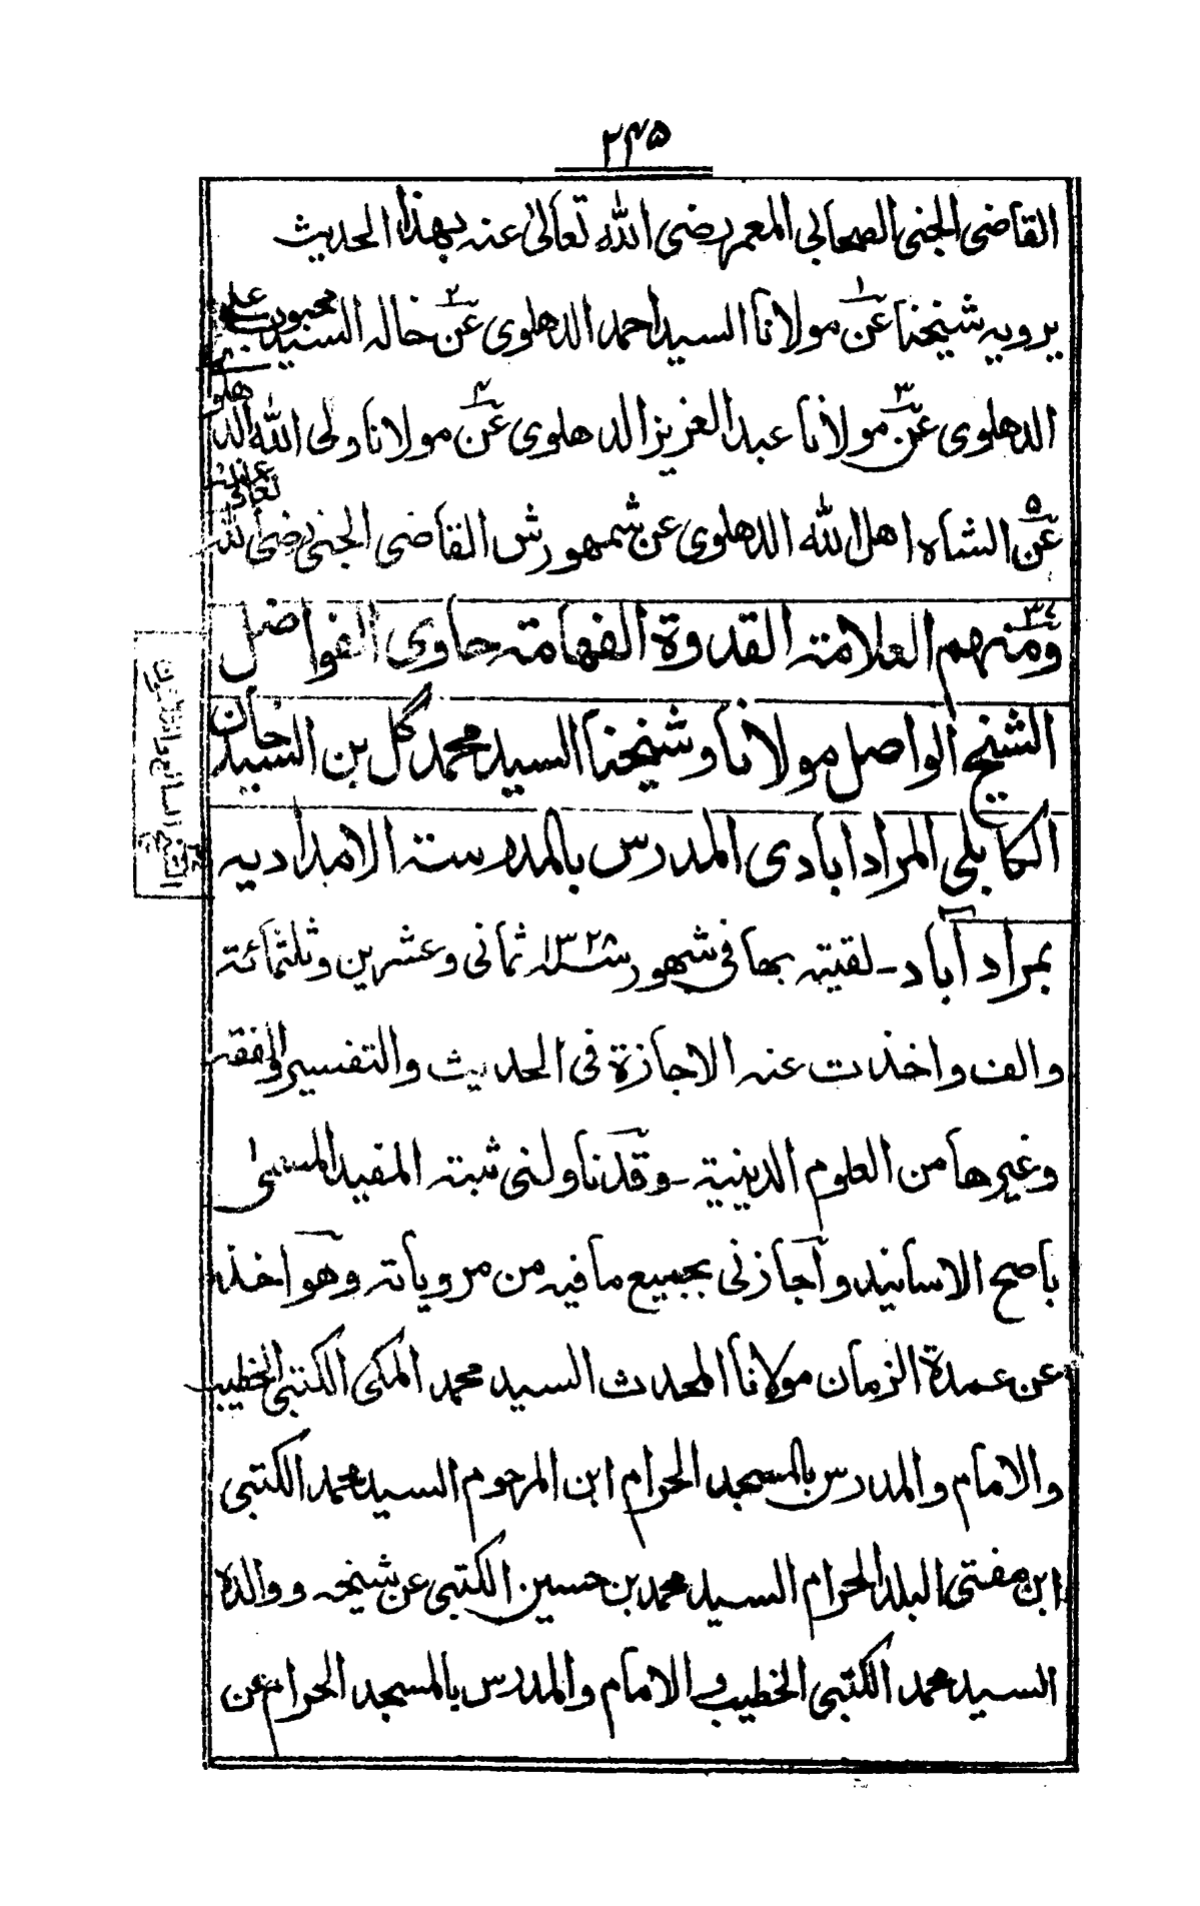 ۲۴۵
القاضی الجنی الصحابی المعمر رضی الله تعالیٰ عنہ بهذا الحدیث
یرویہ شیخنا عن۱ مولانا السید احمد الدهلوی عن۲ خالہ السید محبوب علی
الدهلوی عن۳ مولانا عبد العزیز الدهلوی عن۴ مولانا ولی الله الدهلوی
عن۵ الشاہ اهل الله الدهلوی عن شمهورش القاضی الجنی رضی الله تعالی عنہ
ومنهم العلامۃ القدوة الفهامۃ حاوی الفواضل
الشیخ الواصل مولانا وشیخنا السید محمد گل بن السید جان
الکابلی المرادابادی المدرس بالمدرسۃ الامدادیہ
بمرادآباد۔ لقیتہ بها فی شهور ۱۳۲۸ ثمانی وعشرین وثلثمائة
والف واخذت عنہ الاجازة فی الحدیث والتفسیر والفقہ
وغیرها من العلوم الدینیۃ۔ وقد ناولنی ثبتہ المفید المسمیٰ
باصح الاسانید واجازنی بجمیع ما فیہ من مرویاتہ وهو اخذ
عن عمدة الزمان مولانا المحدث السید محمد المکی الکتبی الخطیب
والامام والمدرس بالمسجد الحرام ابن المرحوم السید محمد الکتبی
ابن مفتی البلد الحرام السید محمد بن حسین الکتبی عن شیخہ ووالدہ
السید محمد الکتبی الخطیب والامام والمدرس بالمسجد الحرام عن
الشیخ السابع والثلاثون